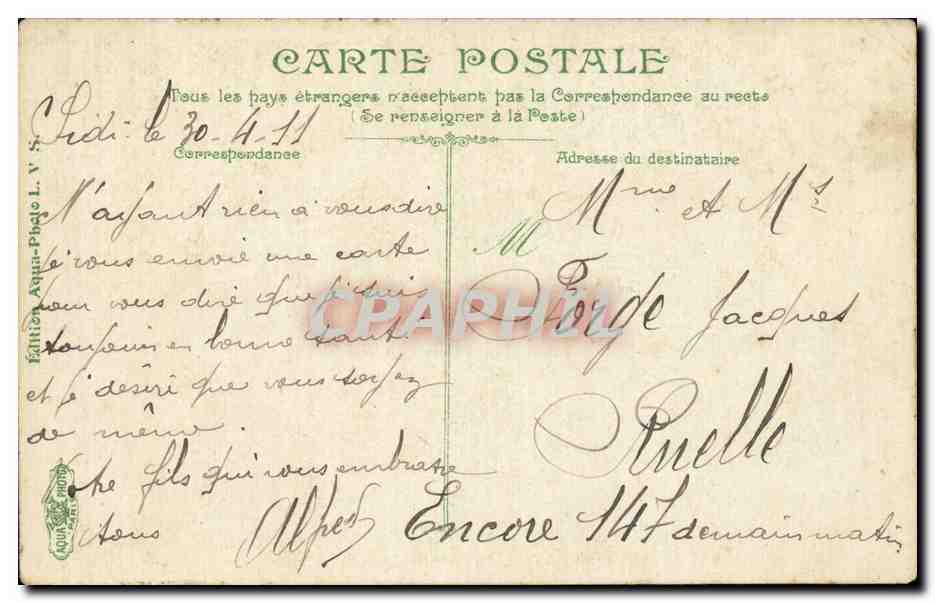 CARTE POSTALE
Tous les pays étrangers n'acceptent pas la Correspondance au recto
(Se renseigner à la Poste)
Sidi le 30-4-11
Correspondance
N'ayant rien a vous dire
je vous envoie une carte
pour vous dire que je suis
toujours en bonne santé
et je désire que vous soyez
de même.
Votre fils qui vous embrasse
tous
Alfred
Adresse du destinataire
Mme et Mr
M
Forge Jacques
Ruelle
Encore 147 demain matin
Édition Aqua-Photo L. V S.
AQUA PHOTO
PARIS
CPAPHIL